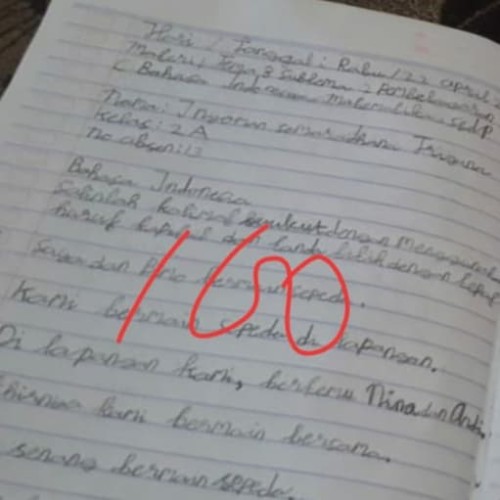 Hari / Tanggal : Rabu / 22 april
Materi / Tema 8 Subtema 2 Pembelajaran
( Bahasa Indonesia matematika sbdp
Nama: Inyoman
Kelas: 2 A
no absen: 13
Bahasa Indonesia
Salinlah kalimat berikut dengan
huruf kapital dan tanda titik dengan tepat
100
Saya dan Brio bermain sepeda.
Kami bermain sepeda di lapangan.
Di lapangan kami, bertemu Nina dan Andi.
kami bermain bersama.
senang bermain sepeda.